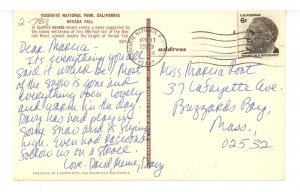 2-783
YOSEMITE NATIONAL PARK, CALIFORNIA
NEVADA FALL
In Spanish nevada means snowy, a name descriptive of
the snowy whiteness of this 594-foot fall of the Merced
River, a
address
6c
FRANKLIN D. ROOSEVELT
Dear Marcia-
It's everything you
said it would be! Most
of the snow is gone and
everything is lovely
and warm in the day.
Davy has had playing
some snow and is flying
high. Even had racoons
follow us on a stroll.
Love, David, Meme, Davy
Miss Marcia Post
37 Lafayette Ave.
Buzzards Bay,
Mass.,
02532